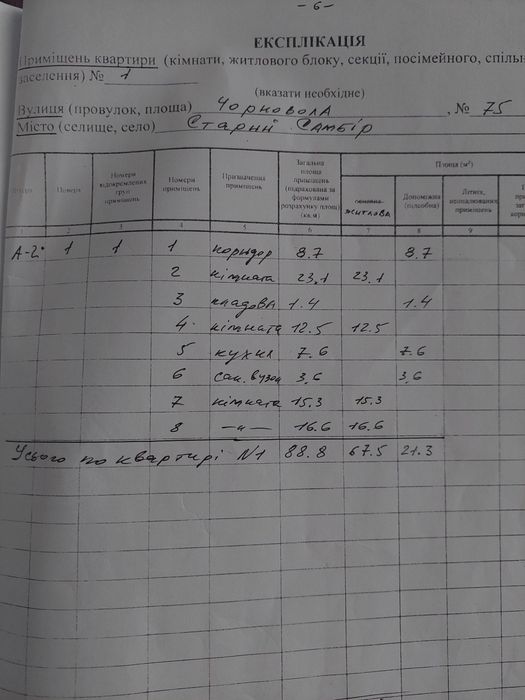 - 6 -
ЕКСПЛІКАЦІЯ
Приміщень квартири (кімнати, житлового блоку, секції, посімейного, спільн
заселення) № 1
(вказати необхідне)
Вулиця (провулок, площа) Чорновола, № 75
Місто (селище, село) Старий Самбір
Поверх Номери відокремлених груп приміщень Номери приміщень Призначення приміщень Загальна площа приміщень (підрахована за формулами розрахунку площ) (кв.м) Площа (м²)
житлова Допоміжна (підсобна) Літніх, неопалюваних приміщень
1 2 3 4 5 6 7 8 9
А-2" 1 1 1 коридор 8.7 8.7
2 кімната 23,1 23.1
3 кладова 1.4 1.4
4. кімната 12.5 12.5
5 кухня 7.6 7.6
6 сан. вузол 3,6 3,6
7 кімната 15.3 15.3
8 —"— 16.6 16.6
Усього по квартирі №1 88.8 67.5 21.3